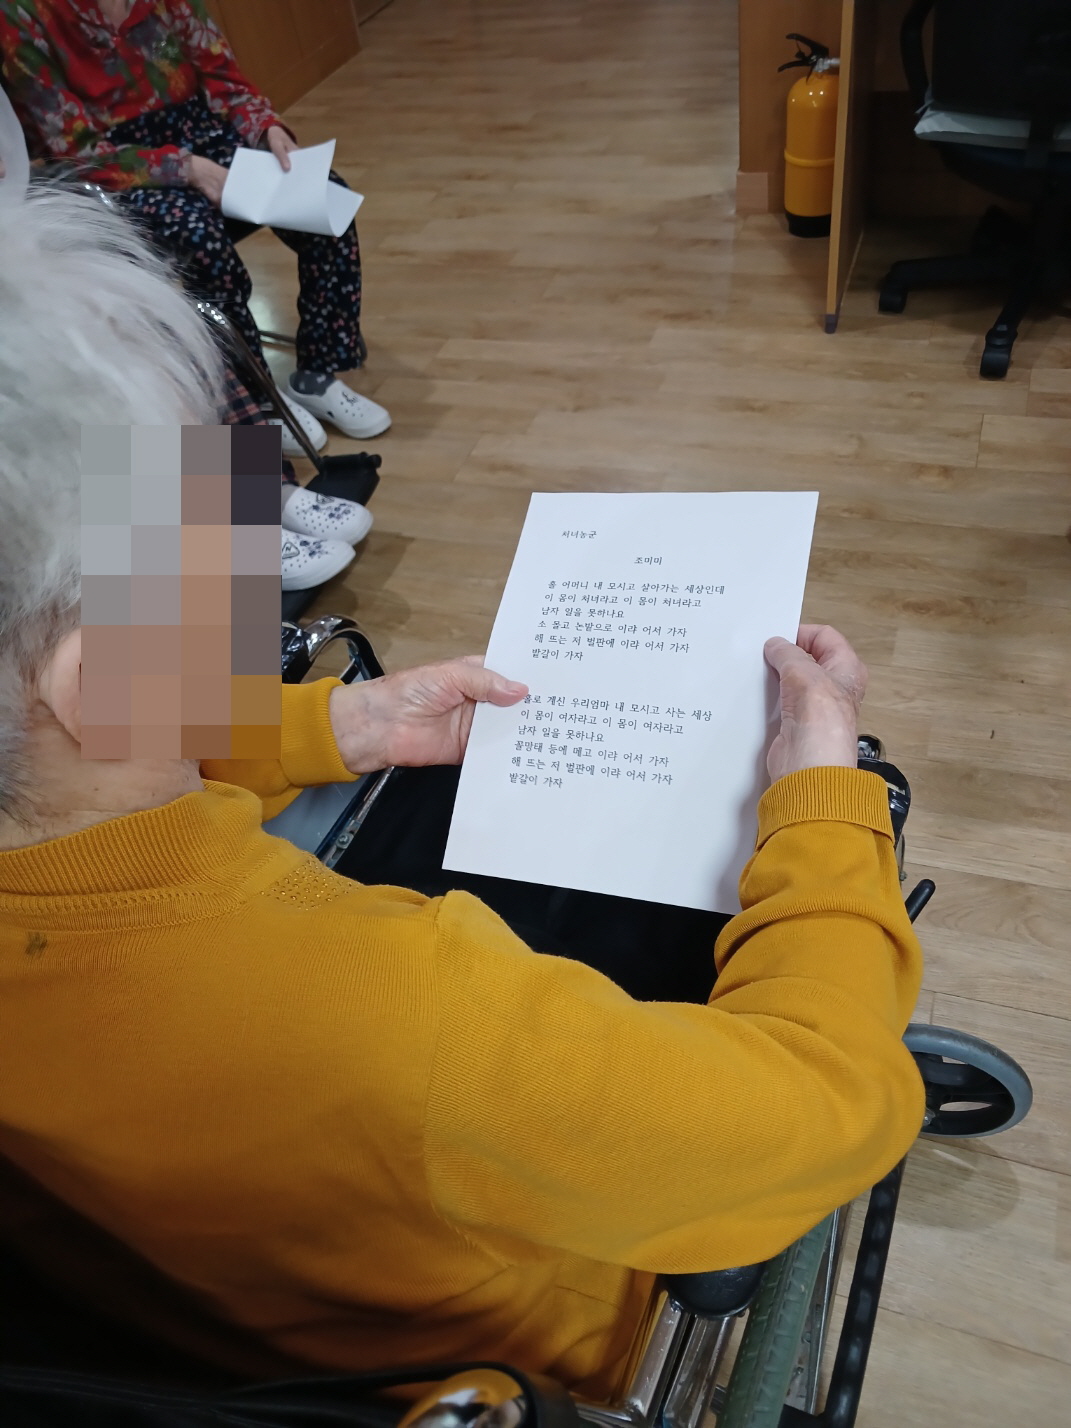 처녀농군
조미미
홀 어머니 내 모시고 살아가는 세상인데
이 몸이 처녀라고 이 몸이 처녀라고
남자 일을 못하나요
소 몰고 논밭으로 이랴 어서 가자
해 뜨는 저 벌판에 이랴 어서 가자
밭갈이 가자
홀로 계신 우리엄마 내 모시고 사는 세상
이 몸이 여자라고 이 몸이 여자라고
남자 일을 못하나요
꼴망태 등에 메고 이랴 어서 가자
해 뜨는 저 벌판에 이랴 어서 가자
밭갈이 가자